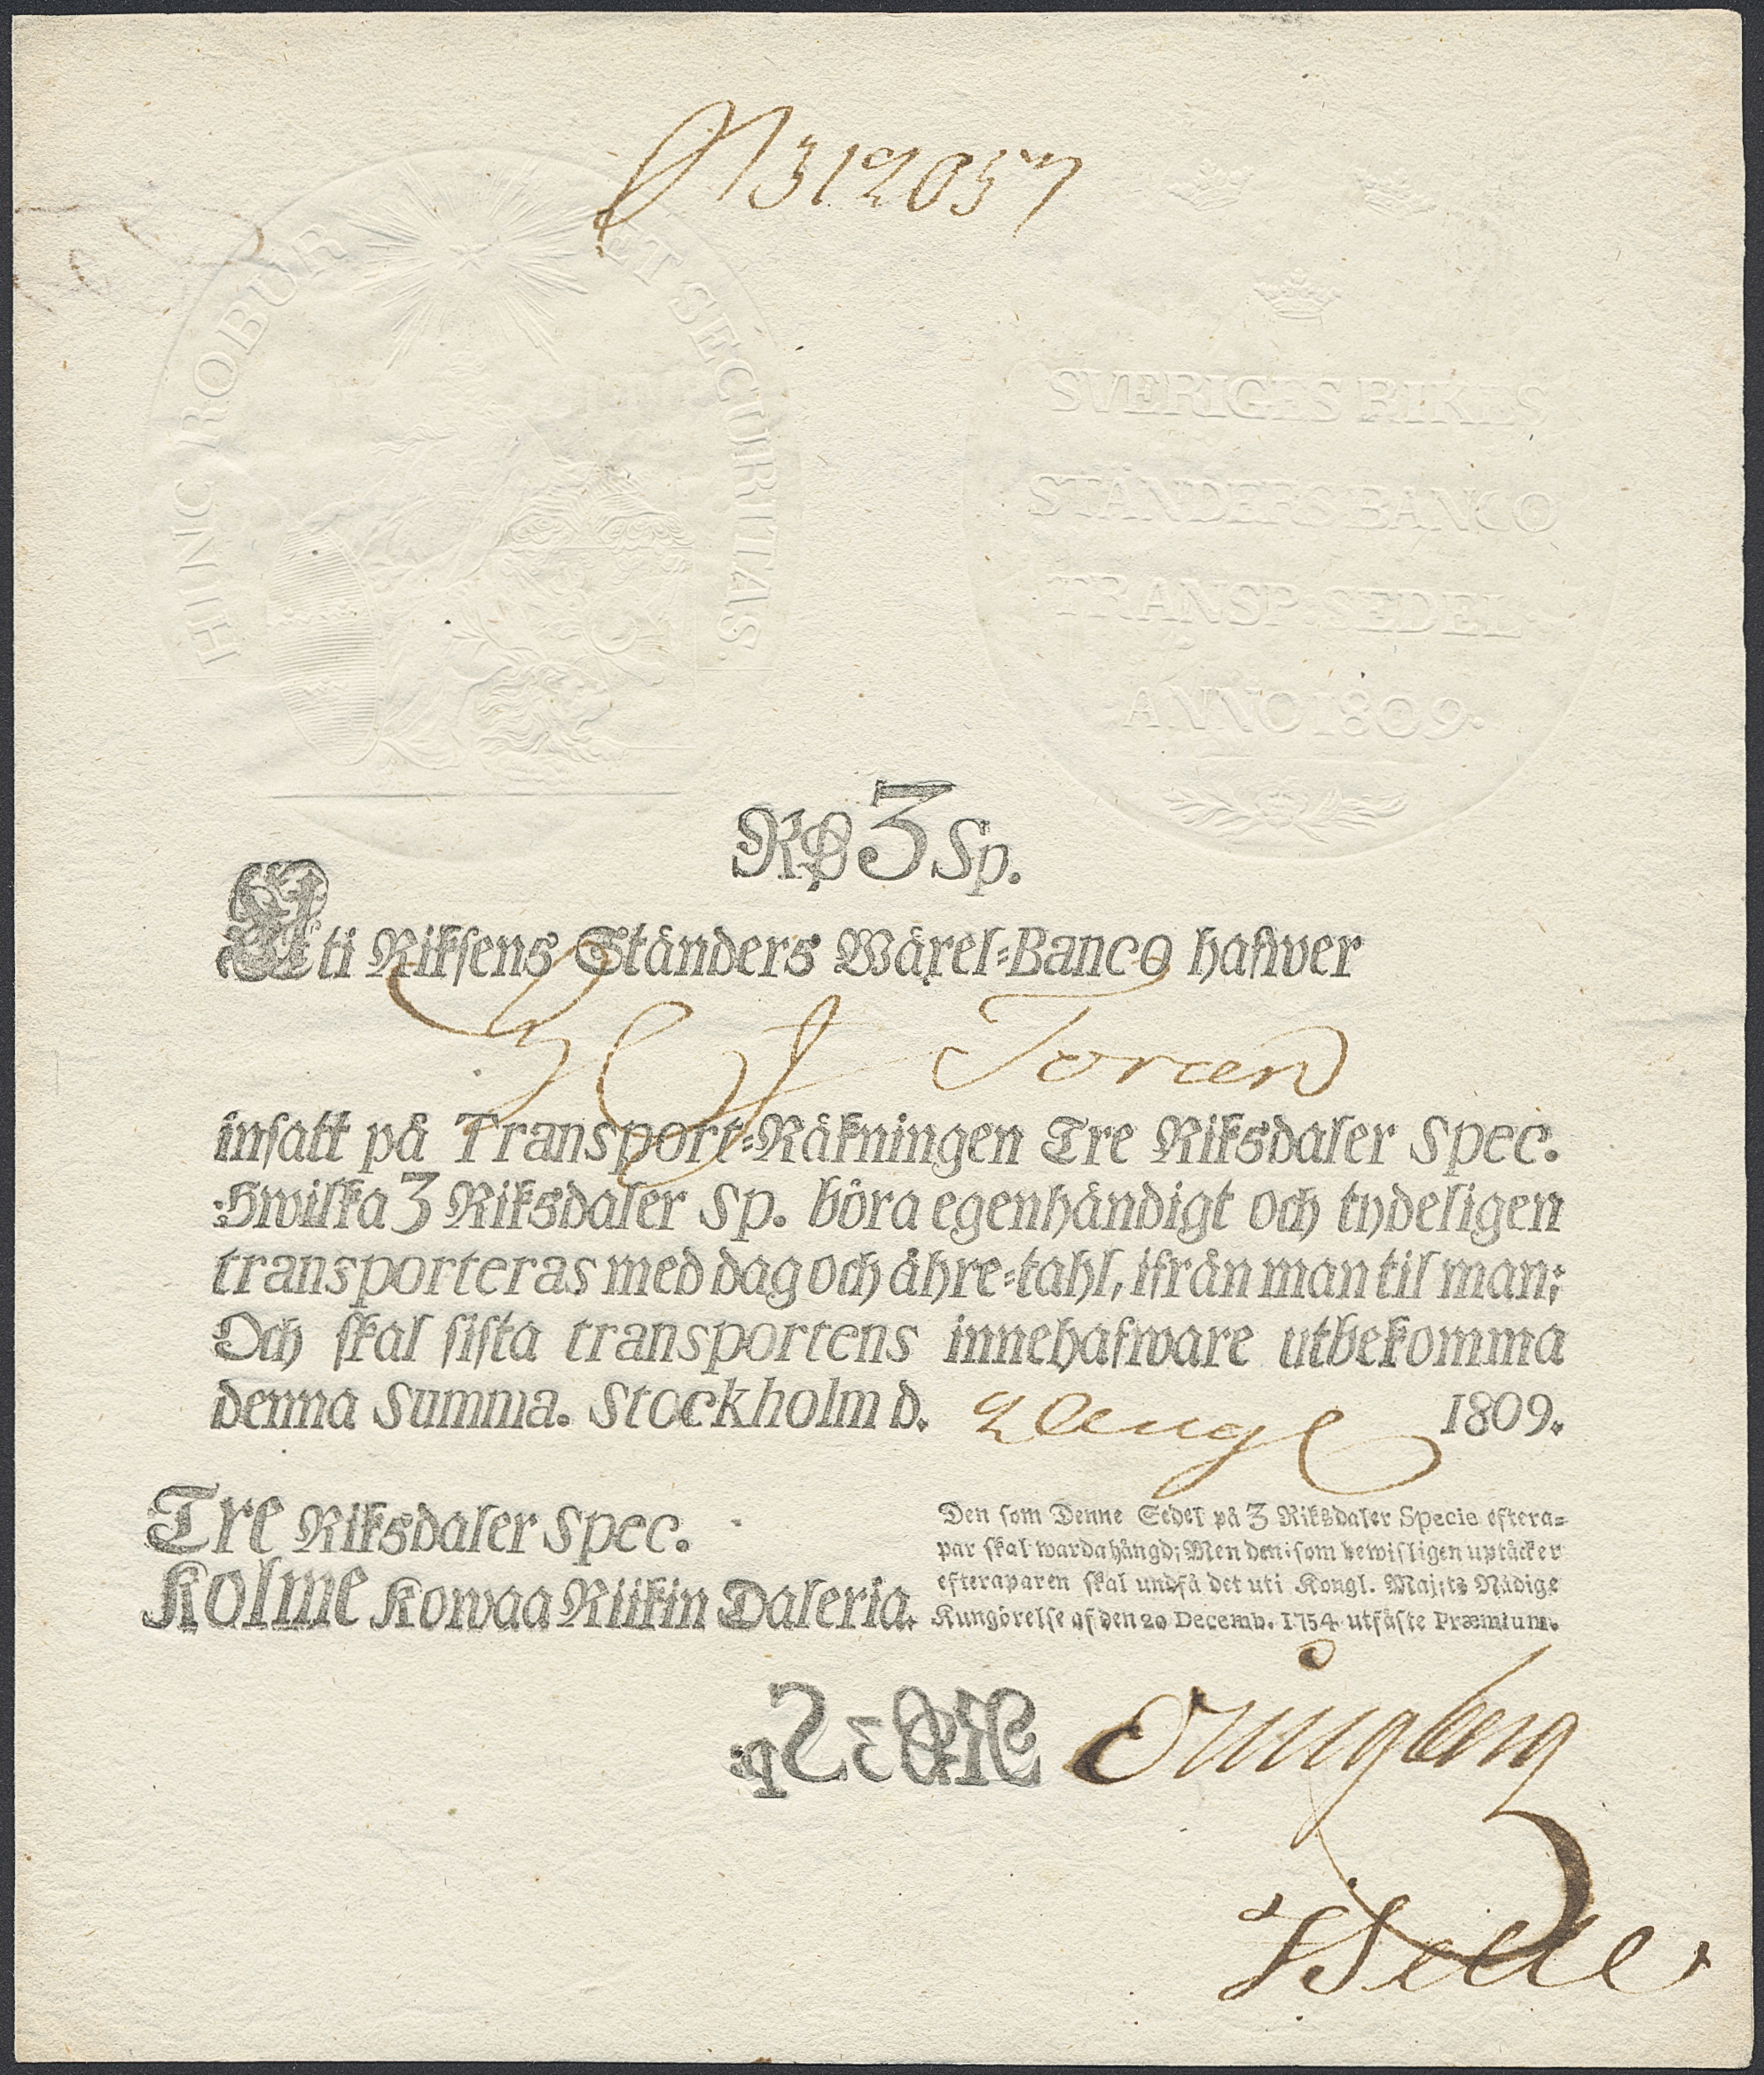 N 312057
HINC ROBUR ET SECURITAS.
SVERIGES RIKES
STÄNDERS BANCO
TRANSP: SEDEL.
ANNO 1809.
RD 3 Sp.
Uti Riksens Ständers Wäxel=Banco hafwer
Toran
insatt på Transport=Räkningen Tre Riksdaler Spec.
Hwilka 3 Riksdaler Sp. böra egenhändigt och tydeligen
transporteras med dag och åhre=tahl, ifrån man til man;
Och skal sista transportens innehafware utbekomma
denna Summa. Stockholm d. 1809.
Tre Riksdaler Spec.
Kolme Kowaa Riikin Daleria.
Den som Denne Sedel på 3 Riksdaler Specie eftera=
par skal warda hängd; Men den som bewisligen uptäcker
efteraparen skal undfå det uti Kongl. Maj:ts Nådige
Kungörelse af den 20 Decemb. 1754 utfäste Præmium.
RD 3 Sp: